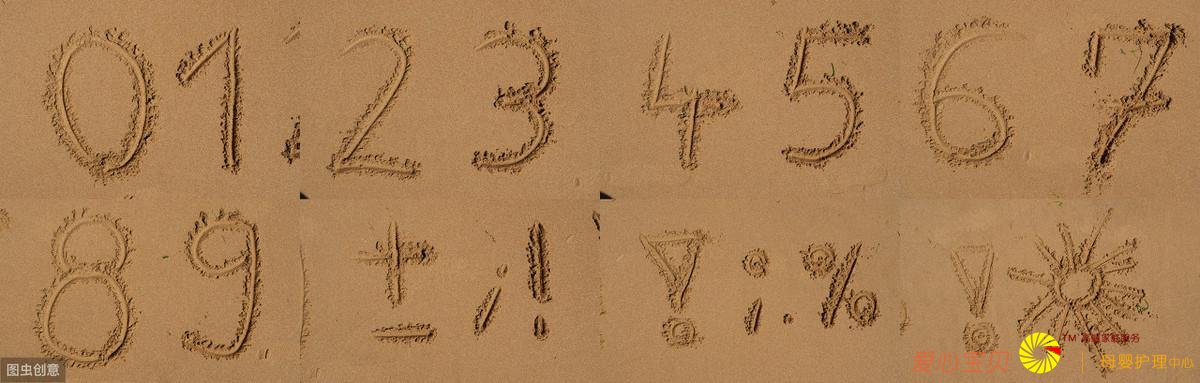 0 1 2 3 4 5 6 7
8 9 ± ; ! ! ; . % !
图虫创意
爱心宝贝 TM
母婴护理中心